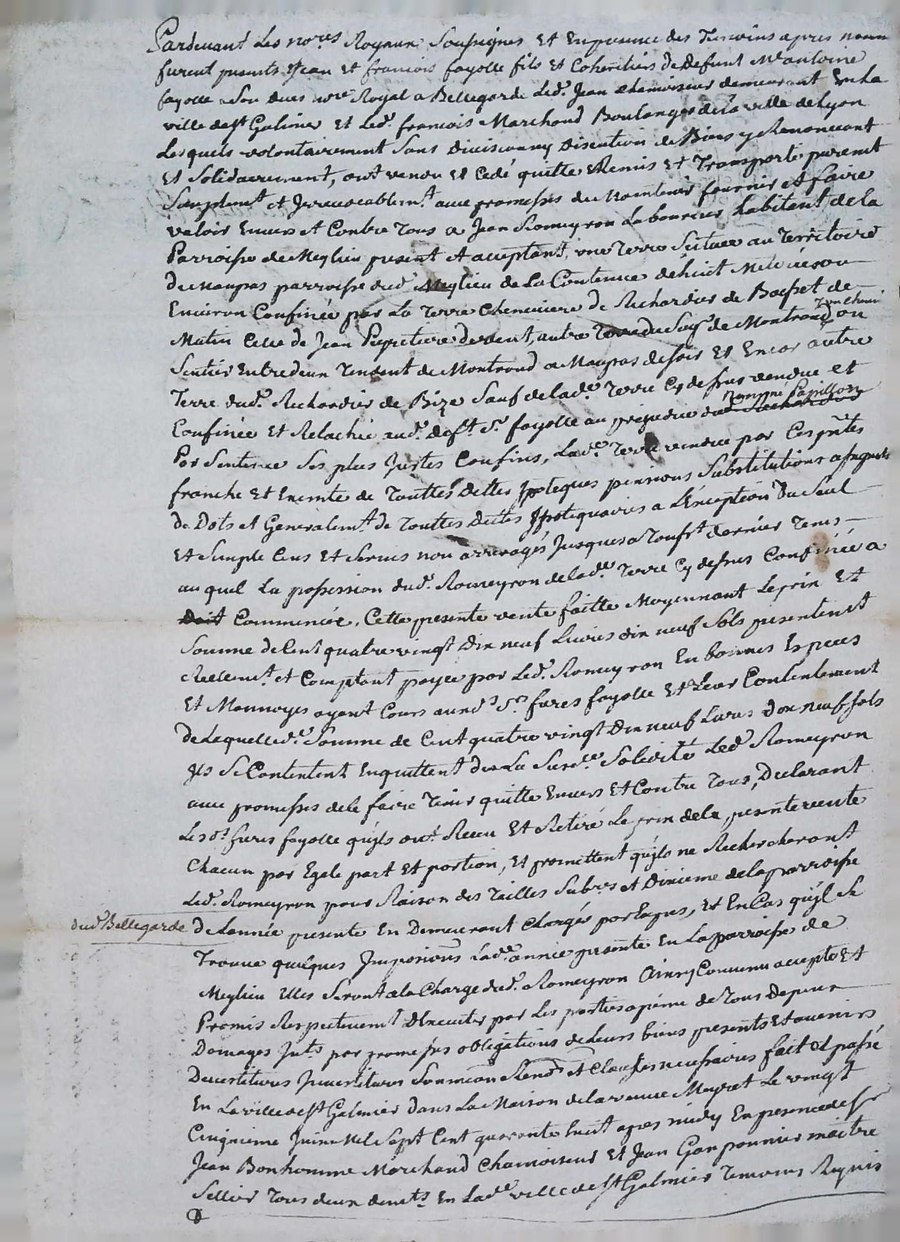 Pardevant Les no.res Royaux Soussignes Et En presence des Temoins apres nomm
furent presents Sr Jean et francois fayolle fils et Coheritiers de defunt Me antoine
fayolle no.re Royal a Bellegarde Led. Jean chamoiseur demeurant En La
ville de St Galmier Et Led. francois Marchand Boulanger de la ville de Lyon
Lesquels volontairement Sans Division ny Discution de Biens y Renoncant
Et Solidairement, ont vendu Et Cedé quitté Remis Et Transporté purement
Simplemt et Irrevocablemt. avec promesses de Maintenir fournir et faire
valoir Envers et Contre Tous a Jean Romeyron Laboureur habitant de la
Parroisse de Meylieu present et acceptant, une Terre Scituée au Territoire
du Maupas parroisse dud. Meylieu de La Contenue de huit
Environ Confinée par La Terre Cheneviere de Richardier de Boisset de
Matin Celle de Jean de vent, autre Terre du Sieur de Montrond ou
un chemin
Sentier Entredeux Tendent de Montrond a Maupas de soir Et Encor autre
Terre dud. Richardier de Bize Sauf de lad. Terre Cy dessus vendue et
Confinée Et Relachée aud. deft Sr fayolle au prejudice du Richardier
nommé Papillon
Par Sentence Ses plus Justes Confins, Lad. Terre vendue par Ces prtes
franche Et Exemte de Touttes dettes Ipoteques pensions Substitutions
de Dots et Generalemt. de Touttes Dettes Ipotiquaires a L'Exception du Seul
Et Simple Cens Et Servis non arreragés Jusques a Toussts dernier Tems
auquel La possession dud. Romeyron de lad. Terre Cy dessus Confinée a
Commencée. Cette presente vente faitte Moyennant Le prix Et
Somme de Cent quatre vingt Dix neuf Livres dix neuf Sols presentemt
Réellemt. et Comptant payée par Led. Romeyron En bonnes Especes
Et Monnoyes ayant Cours auxd. Srs freres fayolle Et a Leur Contentement
de Laquelle de. Somme de Cent quatre vingt Dix neuf Livres dix neuf Sols
Ils Se Contentent En quittent de La Susd.e Solidité Led. Romeyron
avec promesses de le faire Tenir quitte Envers Et Contre Tous, Declarant
Les ds freres fayolle qu'ils ont Receu Et Retiré Le prix de la presente vente
Chacun par Egale part Et portion, Et promettent qu'ils ne Rechercheront
Led. Romeyron pour Raison des Tailles Subres et Dixieme de la parroisse
dud. Bellegarde
de L'année presente En Demeurant Chargés par Expres, Et En Cas qu'il Se
Trouve quelques Impositions Lad. année presente En La parroisse de
Meylieu Elles Seront a la Charge dud. Romeyron Ainsy Convenu accepté Et
Promis Respectivemt. D'Executer par Les parties a peine de Tous Depens
Domages Ints par promesses obligations de Leurs biens presents Et avenirs
Devestitures Investitures Et Clauses necessaires fait Et passé
En La ville de St Galmier dans La Maison de la veuve Meyret Le vingt
Cinqieme Juin Mil Sept Cent quarante huit apres midy En presence de Sr
Jean Bonhomme Marchand Chamoiseur Et Jean Gouponnier maitre
Sellier Tous deux demts. En Lad. ville de St Galmier Temoins Requis